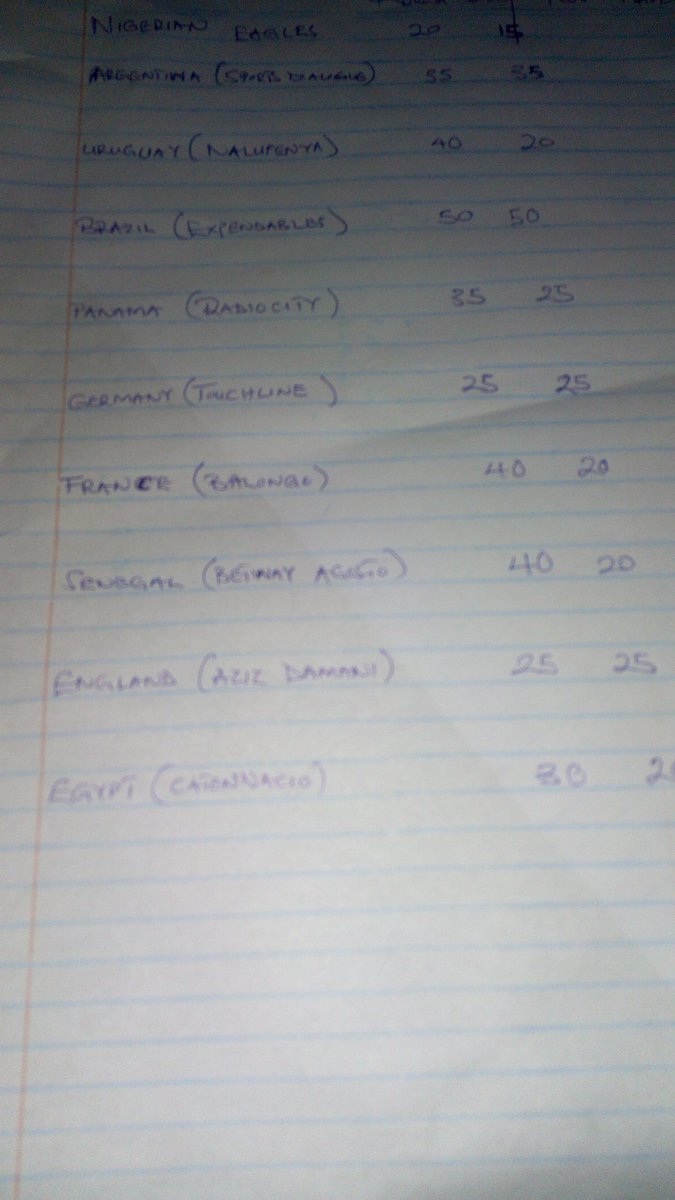 NIGERIAN EAGLES 20 15
ARGENTINA (SPORTS DIALOGUE) 55 35
URUGUAY (NALUFENYA) 40 20
BRAZIL (EXPENDABLES) 50 50
PANAMA (RADIOCITY) 35 25
GERMANY (TOUCHLINE) 25 25
FRANCE (BALONBO) 40 20
SENEGAL (BETWAY AGOSTO) 40 20
ENGLAND (AZIZ DAMANI) 25 25
EGYPT (CATENNACIO) 30